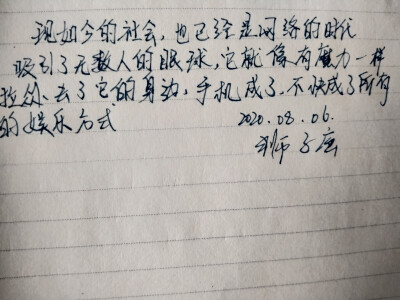 现如今的社会，也已经是网络的时代
吸引了无数人的眼球，它就像有魔力一样
拉你去了它的身边，手机成了.不快成了所有
的娱乐方式
2020.08.06.
狮子座